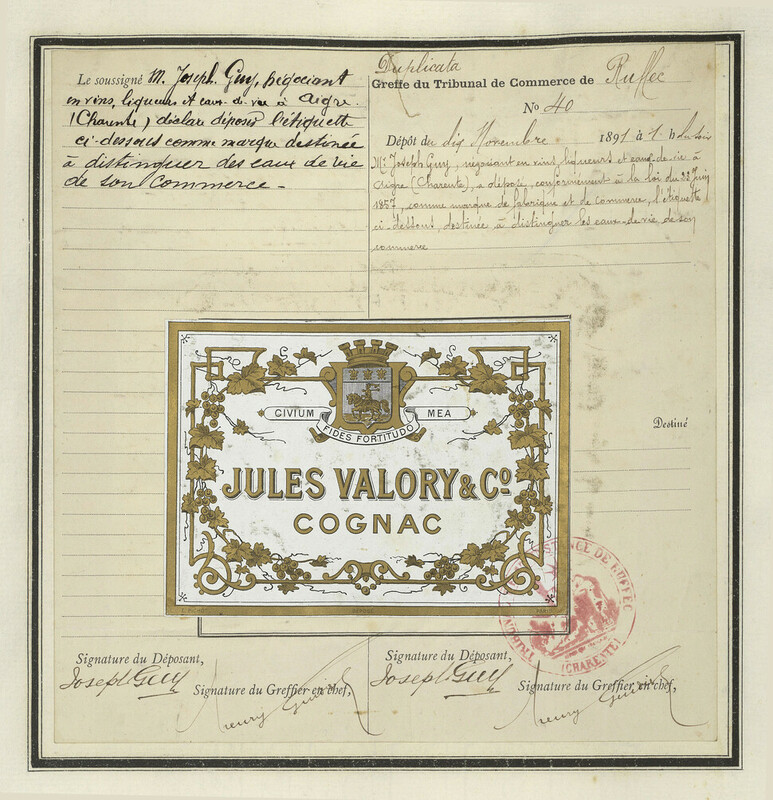 Le soussigné M. Joseph Guy, négociant
en vins, liqueurs et eaux-de-vie à Aigre
(Charente) déclare déposer l'étiquette
ci-dessous comme marque destinée
à distinguer des eaux de vie
de son commerce -
Duplicata
Greffe du Tribunal de Commerce de Ruffec
No 40
Dépôt du dix Novembre 1891 à 1 h du soir
Mr Joseph Guy, négociant en vins, liqueurs et eaux-de-vie à
Aigre (Charente), a déposé, conformément à la loi du 23 Juin
1857, comme marque de fabrique et de commerce, l'étiquette
ci-dessous, destinée à distinguer les eaux-de-vie de son
commerce
CIVIUM MEA
FIDES FORTITUDO
JULES VALORY & Co
COGNAC
Destiné
INSTANCE DE RUFFEC
(CHARENTE)
Signature du Déposant,
Joseph Guy
Signature du Greffier en chef,
Signature du Déposant,
Joseph Guy
Signature du Greffier en chef,